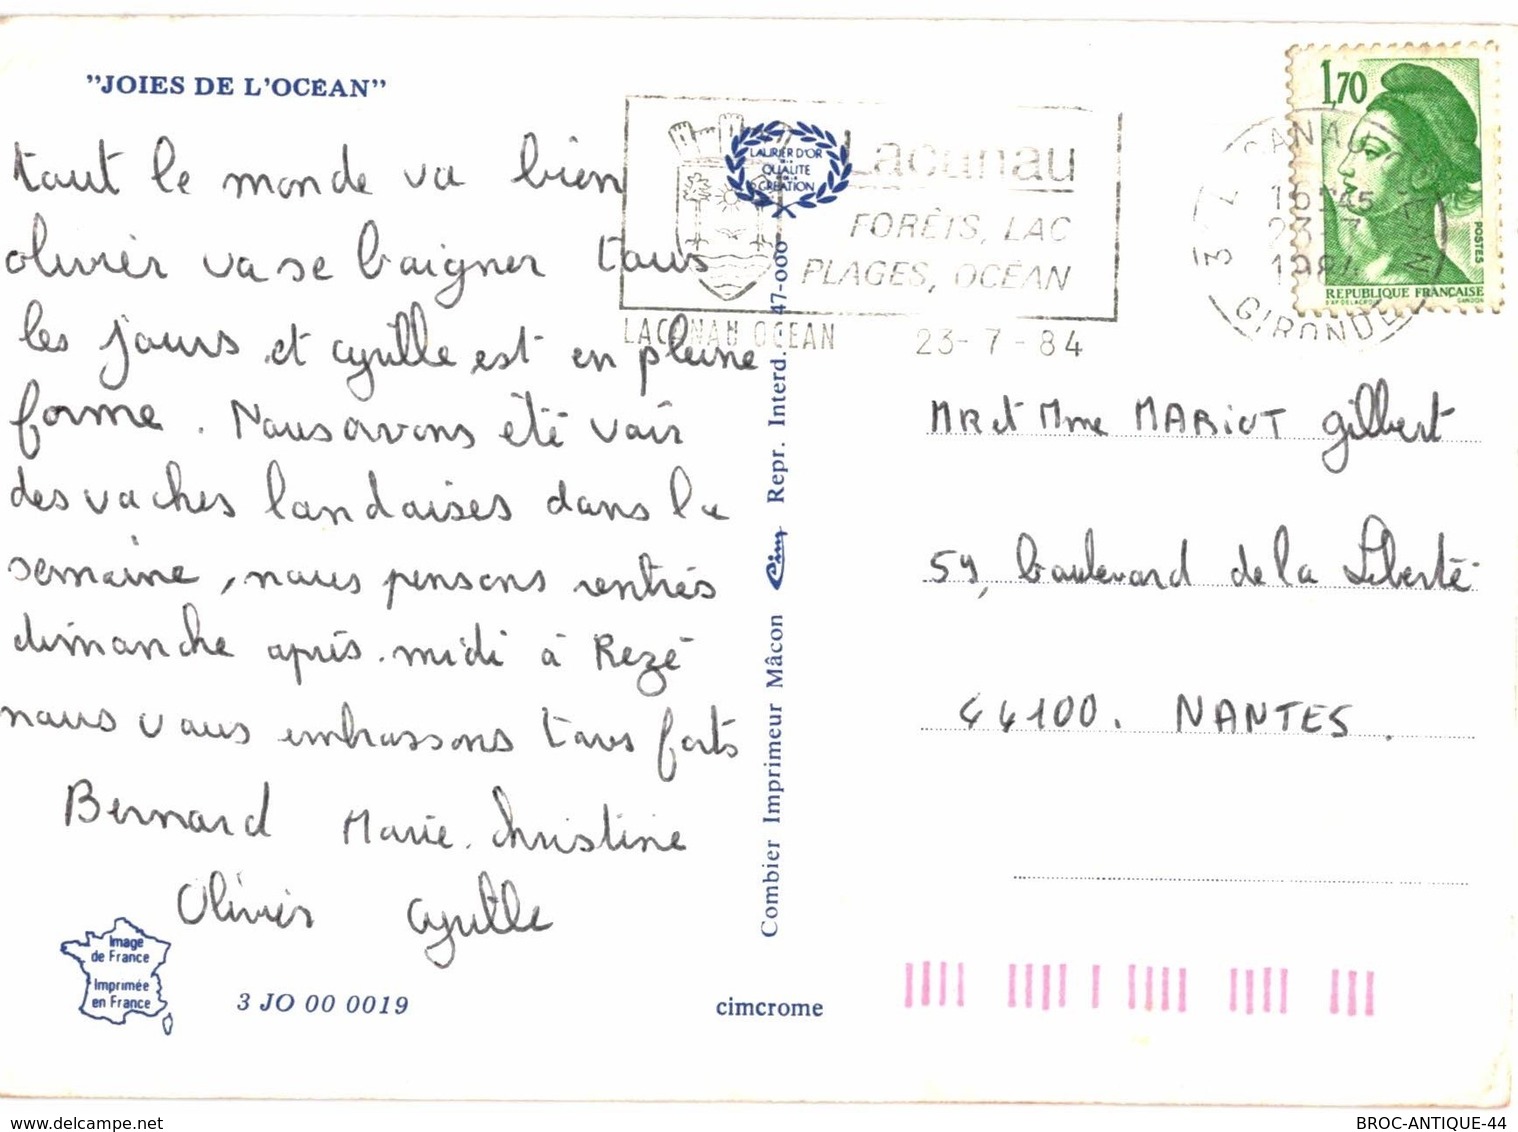 "JOIES DE L'OCÉAN"
tout le monde va bien
olivier va se baigner tous
les jours et cyrille est en pleine
forme. Nous avons été voir
des vaches landaises dans la
semaine, nous pensons rentrés
dimanche après-midi à Rezé
nous vous embrassons tous forts
Bernard Marie-Christine
Olivier Cyrille
Image
de France
Imprimée
en France
3 JO 00 0019
cimcrome
Combier Imprimeur Mâcon Cim Repr. Interd. 47-000
LAURIER D'OR
DE LA
QUALITÉ
DE LA
CRÉATION
Lacanau
FORÊTS, LAC
PLAGES, OCÉAN
LACANAU OCEAN
23-7-84
1,70
POSTES
REPUBLIQUE FRANÇAISE
D'AP. DELACROIX GANDON
16H45
23-7
1984
GIRONDE
MR et Mme MARIOT gilbert
59, boulevard de la Liberté
44100. NANTES.
www.delcampe.net
BROC-ANTIQUE-44